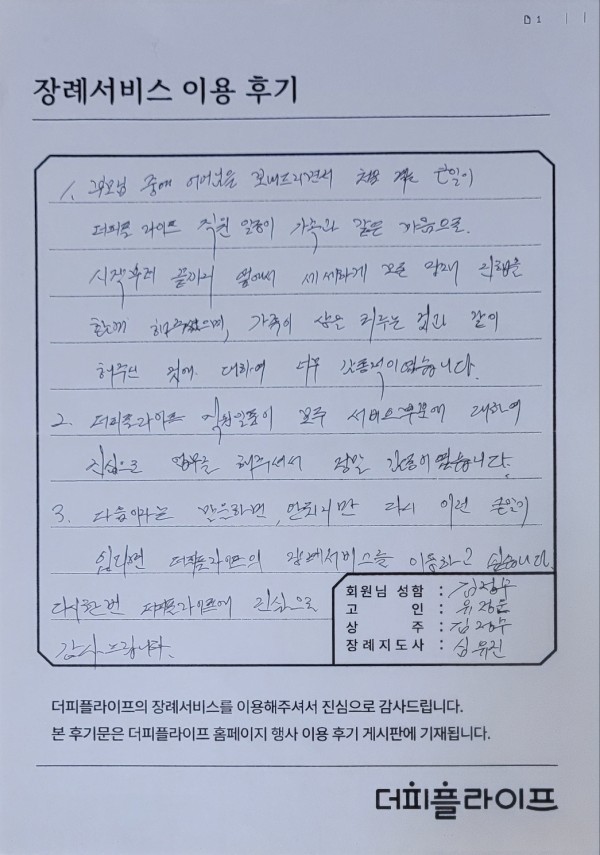 1
장례서비스 이용 후기
1. 부모님 중에 어머님을 보내드리면서 처음 겪는 큰일이
더피플 라이프 직원 일동이 가족과 같은 마음으로.
시작부터 끝까지 옆에서 세세하게 모든 장례 진행을
함께 해주셨으며, 가족이 상을 치루는 것과 같이
해주신 것에 대하여 너무 감동적이였습니다.
2. 더피플라이프 직원일동이 모두 서비스부분에 대하여
진심으로 업무를 해주셔서 정말 감동이였습니다.
3. 다음이라는 말을하면, 안되지만 다시 이런 큰일이
있다면 더피플라이프의 장례서비스를 이용하고 싶습니다
다시한번 더피플라이프에 진심으로
감사드립니다.
회원님 성함 : 김정수
고 인 : 유정윤
상 주 : 김정수
장례지도사 : 심유진
더피플라이프의 장례서비스를 이용해주셔서 진심으로 감사드립니다.
본 후기문은 더피플라이프 홈페이지 행사 이용 후기 게시판에 기재됩니다.
더피플라이프